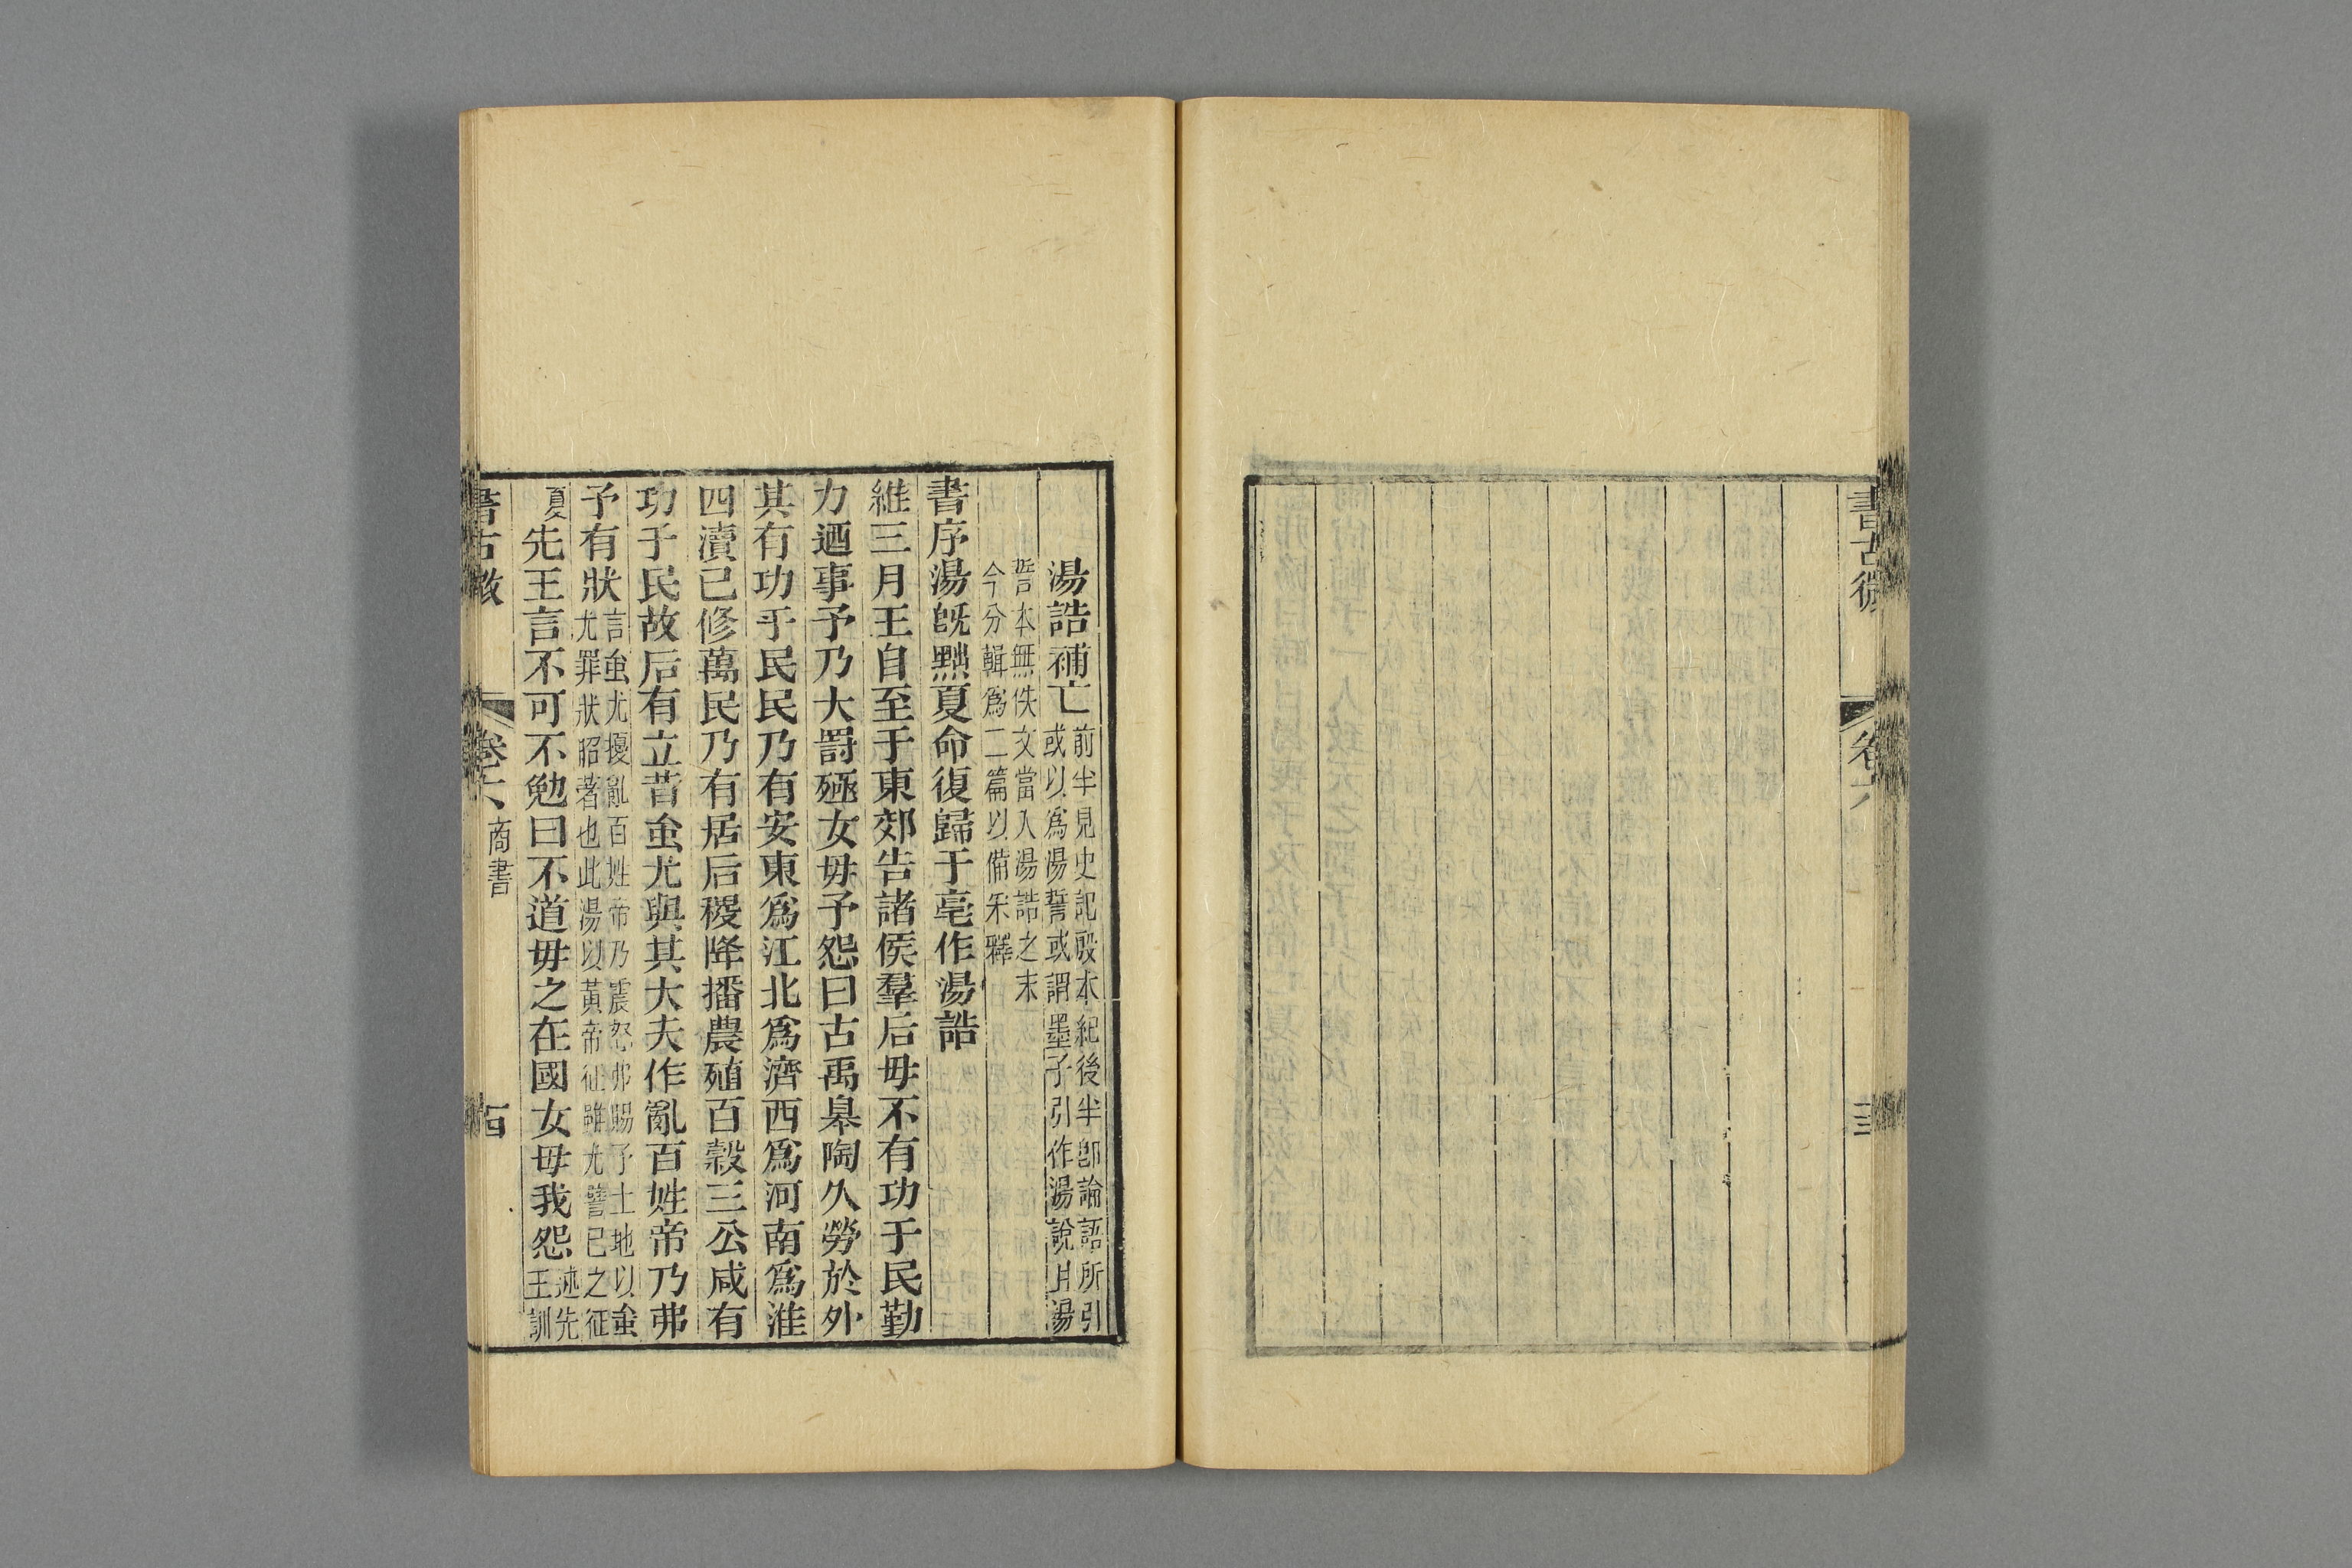 書古微
卷六
湯誥補亡前半見史記殷本紀後半卽論語所引
或以爲湯誓或謂墨子引作湯說且湯
誓本無佚文當入湯誥之末
今分輯爲二篇以備采釋
書序湯旣黜夏命復歸于亳作湯誥
維三月王自至于東郊告諸侯羣后毋不有功于民勤
力迺事予乃大罰殛女毋予怨曰古禹皋陶久勞於外
其有功乎民民乃有安東爲江北爲濟西爲河南爲淮
四瀆已修萬民乃有居后稷降播農殖百穀三公咸有
功于民故后有立昔蚩尤與其大夫作亂百姓帝乃弗
予有狀言蚩尤擾亂百姓帝乃震怒弗賜予土地以蚩
尤罪狀昭著也此湯以黃帝征蚩尤譬已之征
夏先王言不可不勉曰不道毋之在國女毋我怨述先
王訓
書古微
卷六
商書